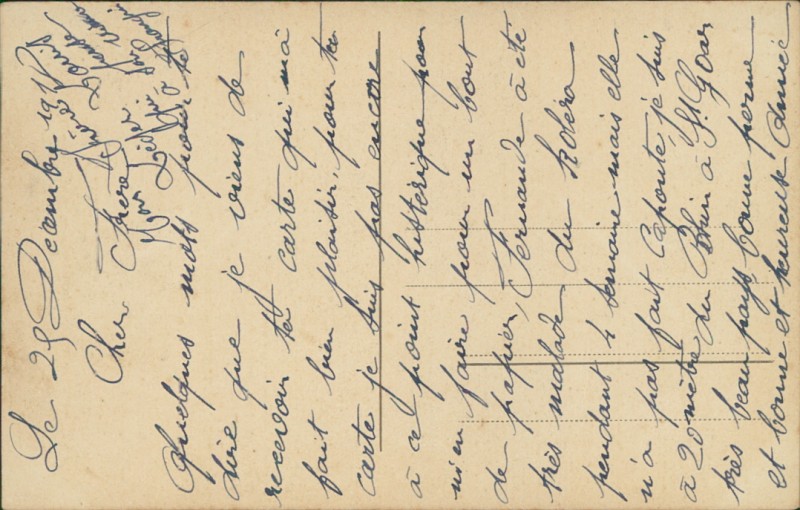 Le 29 Décembre 191
Cher Frère
Quelques mots pour te
dire que je viens de
recevoir ta carte qui mà
fait bien plaisir, pour ta
carte je suis pas encore
à ce point histerique pour
m'en faire pour un bout
de papier, Fernande à été
très malade du Koléra
pendant 4 semaine mais elle
n'a pas fait Capoute, je suis
à 20 mètre du Rhin à St. Goar
très beau pays, bonne permee
et bonne et heureuse Année